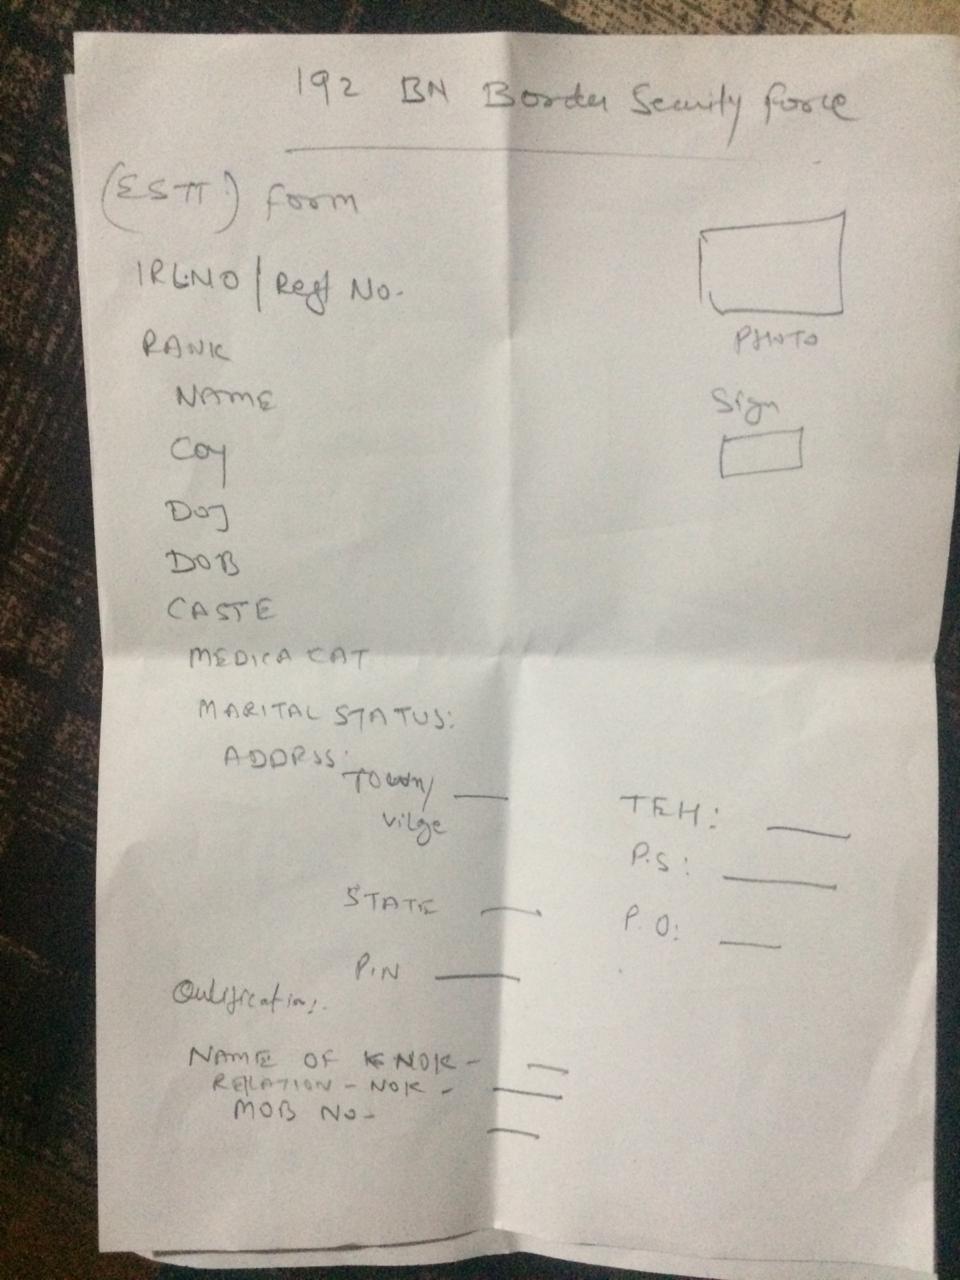 192 BN Border Security Force
(ESTT) Form
IRLNO / Regt No.
PHOTO
RANK
NAME
Sign
Coy
DOJ
DOB
CASTE
MEDICA CAT
MARITAL STATUS:
ADDRSS:
Town/
Vilge
TEH:
P.S:
STATE
P.O:
PIN
Qulification:
NAME OF NOK -
RELATION - NOK -
MOB NO-